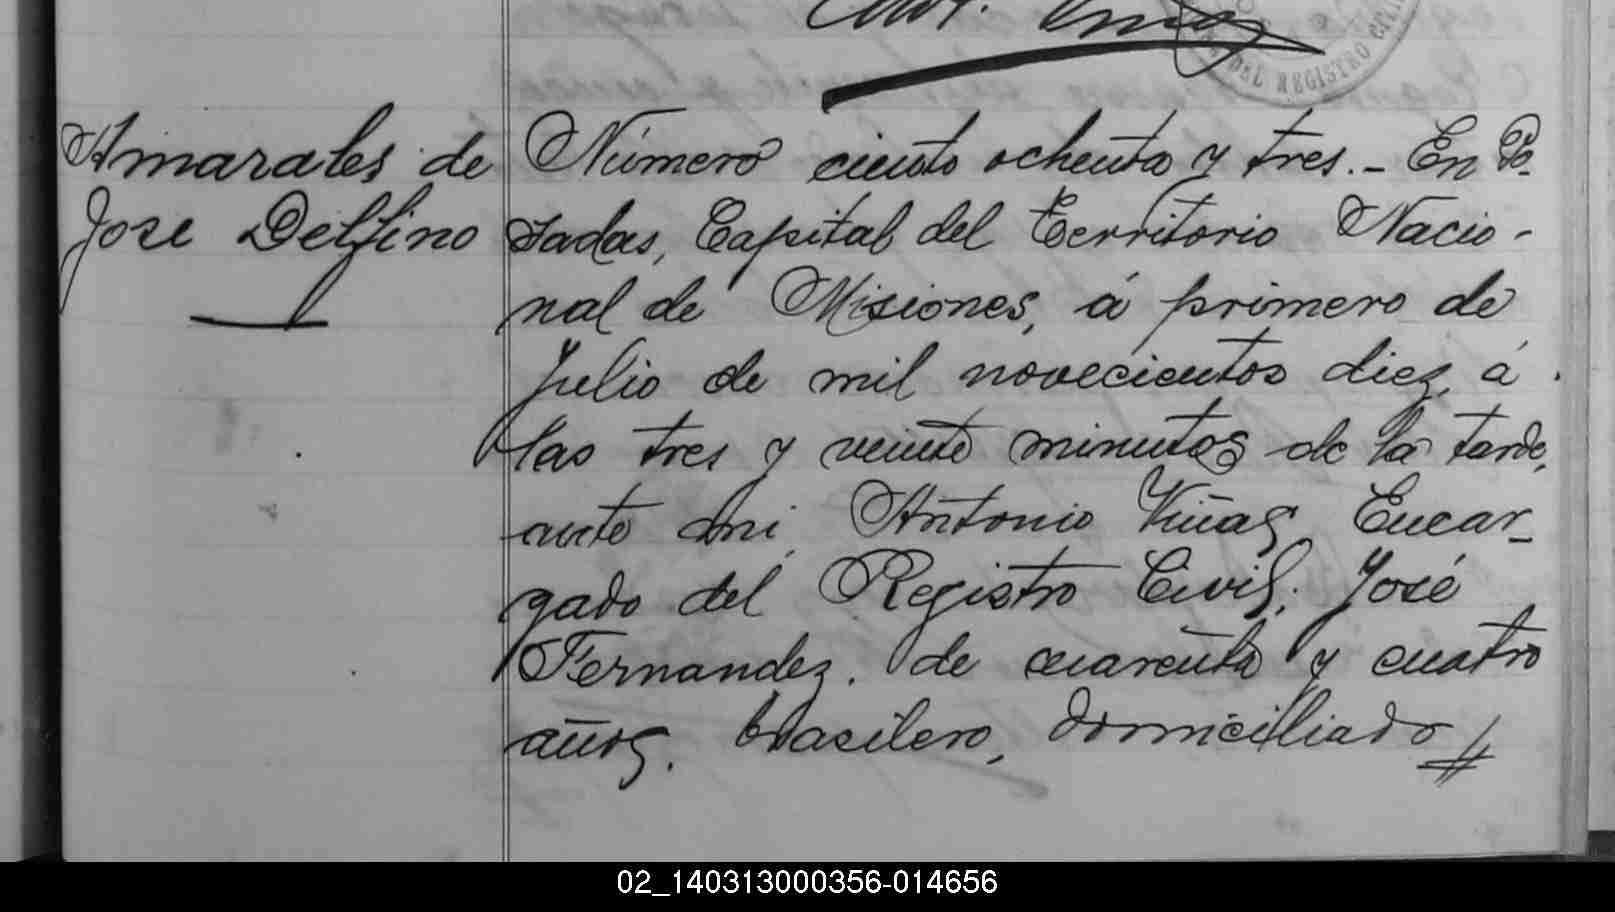 Ant. Viñas
DEL REGISTRO CIVIL
Amarales de
Jose Delfino
Número ciento ochenta y tres.- En Po-
sadas, Capital del Territorio Nacio-
nal de Misiones, á primero de
Julio de mil novecientos diez, á
las tres y veinte minutos de la tarde,
ante mi, Antonio Viñas, Encar-
gado del Registro Civil; José
Fernandez, de cuarenta y cuatro
años, brasilero, domicilliado
02_140313000356-014656